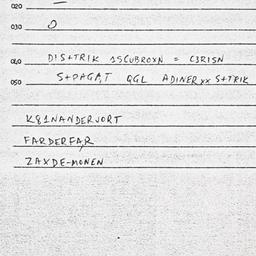 020
030 O
040 DIS+TRIK 15CUBROXN = C3RISN
050 S+PAGAT QGL ADINERXX S+TRIK
K&1NANDERVORT
FARDERFAR
ZAXDE-MONEN